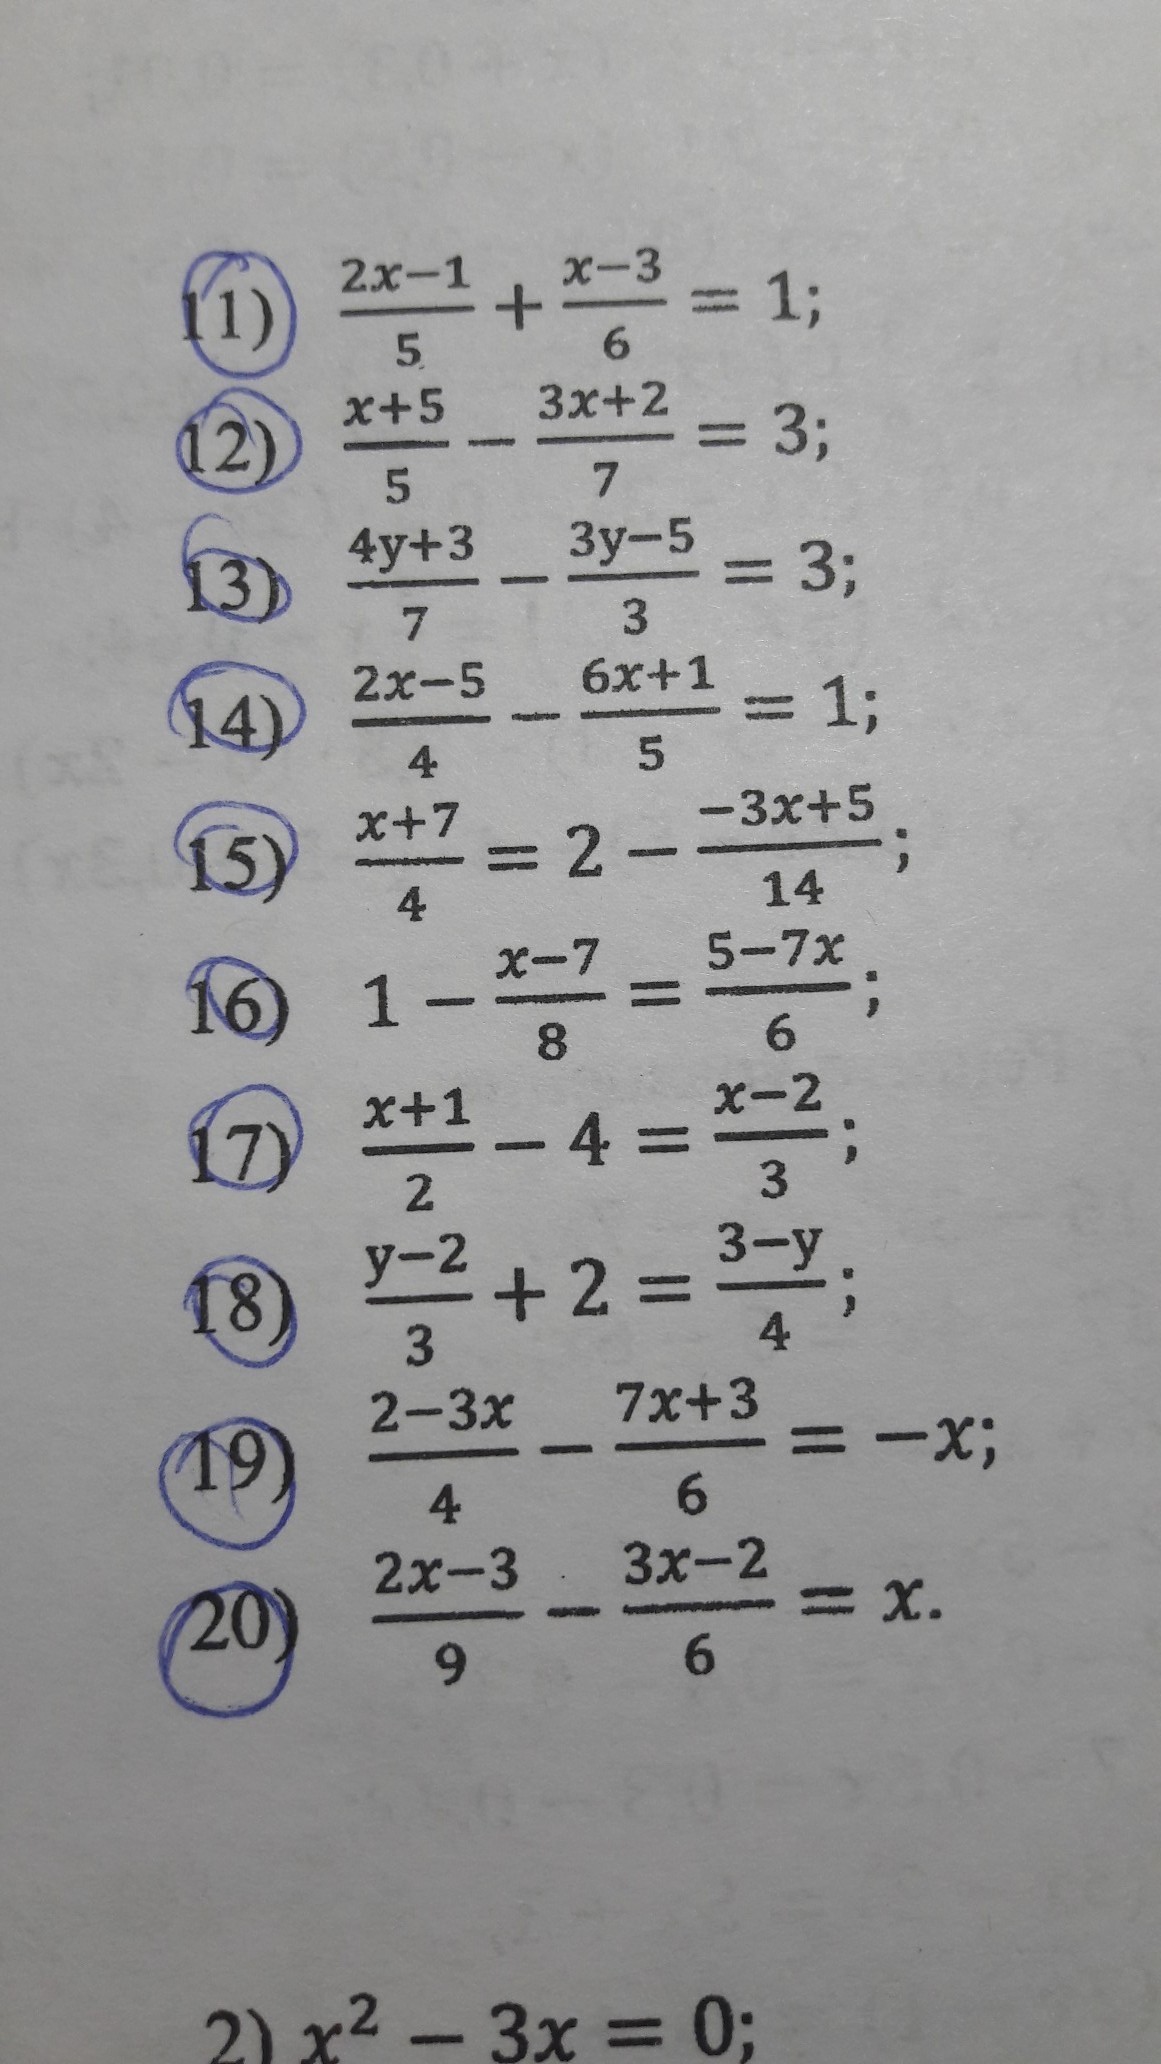 11) (2x−1)/5 + (x−3)/6 = 1;
12) (x+5)/5 − (3x+2)/7 = 3;
13) (4y+3)/7 − (3y−5)/3 = 3;
14) (2x−5)/4 − (6x+1)/5 = 1;
15) (x+7)/4 = 2 − (−3x+5)/14;
16) 1 − (x−7)/8 = (5−7x)/6;
17) (x+1)/2 − 4 = (x−2)/3;
18) (y−2)/3 + 2 = (3−y)/4;
19) (2−3x)/4 − (7x+3)/6 = −x;
20) (2x−3)/9 − (3x−2)/6 = x.
2) x² − 3x = 0;